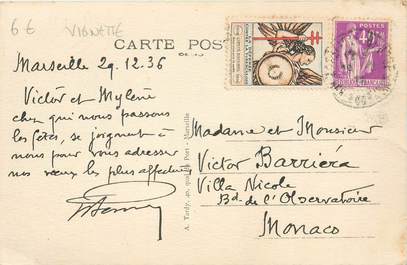 6 €
VIGNETTE
CARTE POS
POSTES
Marseille 29.12.36
Victor et Mylène
chez qui nous passons
les fêtes, se joignent à
nous pour vous adresser
nos vœux les plus affectueux
A. Tardy, 40, quai du Port - Marseille
Madame et Monsieur
Victor Barriéra
Villa Nicole
Bd. de l'Observatoire
Monaco